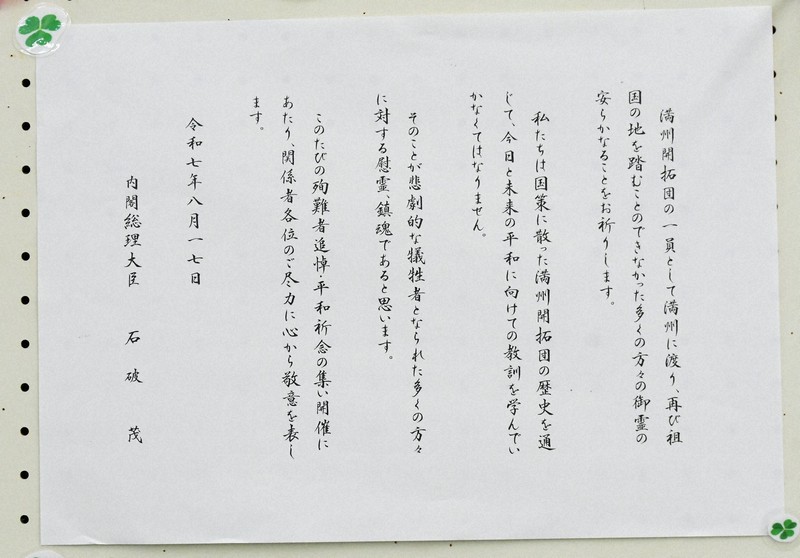 満州開拓団の一員として満州に渡り、再び祖
国の地を踏むことのできなかった多くの方々の御霊の
安らかなることをお祈りします。
私たちは国策に散った満州開拓団の歴史を通
じて、今日と未来の平和に向けての教訓を学んでい
かなくてはなりません。
そのことが悲劇的な犠牲者となられた多くの方々
に対する慰霊、鎮魂であると思います。
このたびの殉難者追悼・平和祈念の集い開催に
あたり、関係者各位のご尽力に心から敬意を表し
ます。
令和七年八月一七日
内閣総理大臣 石破茂